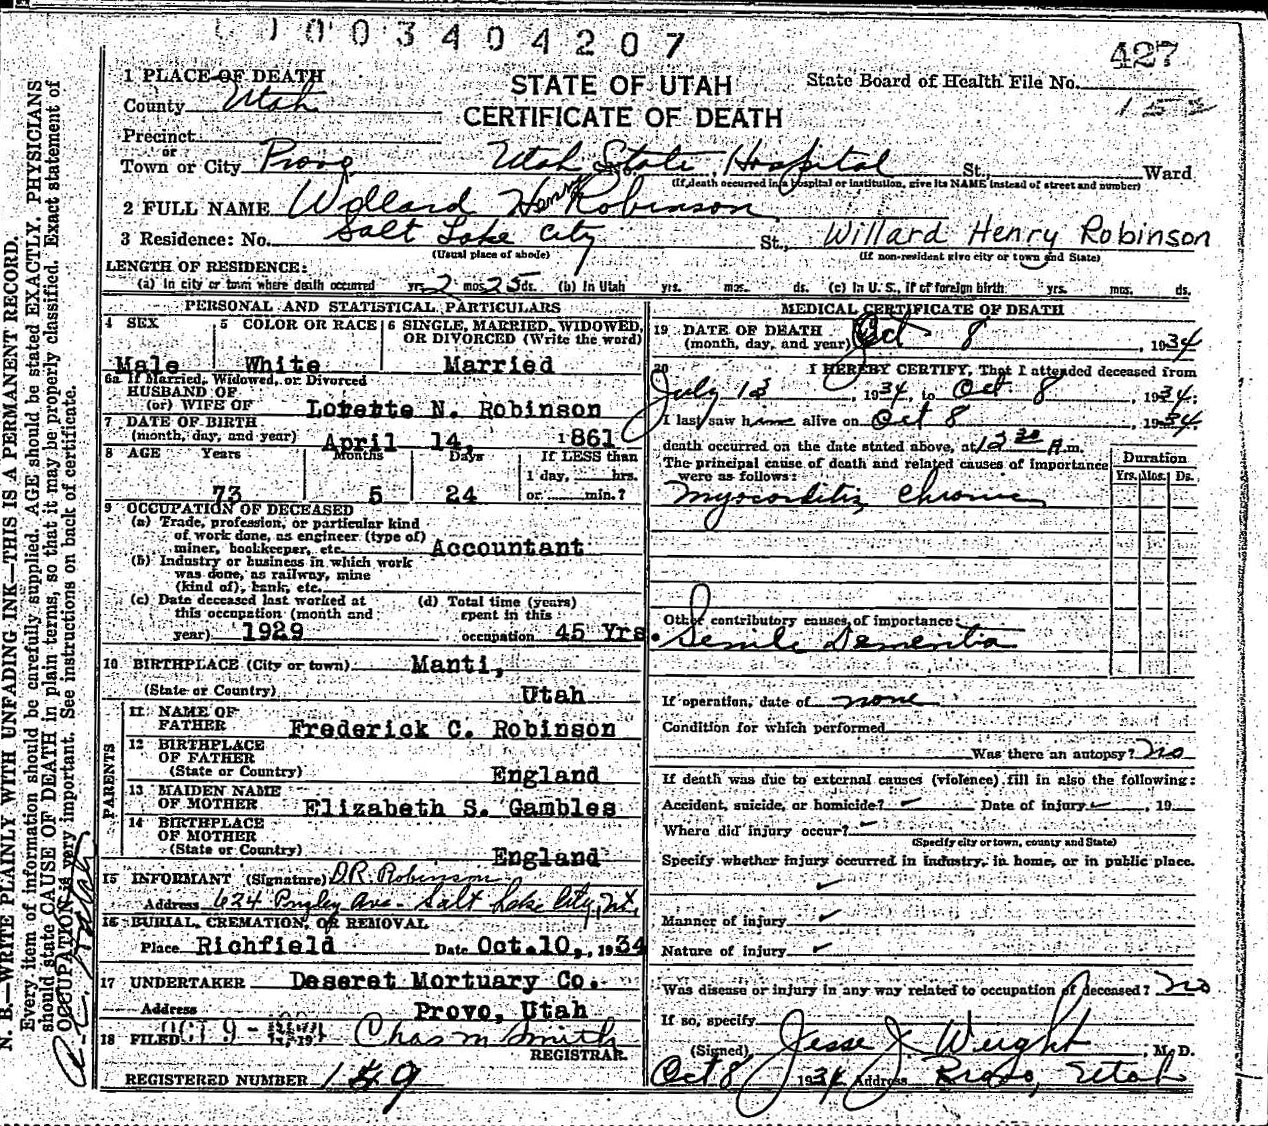 0003404207
427
1 PLACE OF DEATH
STATE OF UTAH
State Board of Health File No.
County Utah
CERTIFICATE OF DEATH
153
Precinct
or
Town or City Provo Utah State Hospital St., Ward
(If death occurred in a hospital or institution, give its NAME instead of street and number)
2 FULL NAME Willard Henry Robinson
3 Residence: No. Salt Lake City St., Willard Henry Robinson
(Usual place of abode) (If non-resident give city or town and State)
LENGTH OF RESIDENCE:
(a) In city or town where death occurred yrs. 2 mos. 25 ds. (b) In Utah yrs. mos. ds. (c) In U. S., if of foreign birth yrs. mos. ds.
PERSONAL AND STATISTICAL PARTICULARS
4 SEX 5 COLOR OR RACE 6 SINGLE, MARRIED, WIDOWED, OR DIVORCED (Write the word)
Male White Married
6a If Married, Widowed, or Divorced
HUSBAND OF
(or) WIFE OF Lorette N. Robinson
7 DATE OF BIRTH
(month, day, and year) April 14, 1861
8 AGE Years Months Days If LESS than
1 day, hrs.
73 5 24 or min.?
9 OCCUPATION OF DECEASED
(a) Trade, profession, or particular kind
of work done, as engineer (type of)
miner, bookkeeper, etc. Accountant
(b) Industry or business in which work
was done, as railway, mine
(kind of), bank, etc.
(c) Date deceased last worked at (d) Total time (years)
this occupation (month and spent in this
year) 1929 occupation 45 Yrs.
10 BIRTHPLACE (City or town) Manti,
(State or Country) Utah
PARENTS
11 NAME OF
FATHER Frederick C. Robinson
12 BIRTHPLACE
OF FATHER
(State or Country) England
13 MAIDEN NAME
OF MOTHER Elizabeth S. Gambles
14 BIRTHPLACE
OF MOTHER
(State or Country) England
15 INFORMANT (Signature) D.R. Robinson
Address 634 Ave- Salt Lake City, Ut.
16 BURIAL, CREMATION, OR REMOVAL
Place Richfield Date Oct. 10, 1934
17 UNDERTAKER Deseret Mortuary Co.
Address Provo, Utah
18 FILED OCT 9 - 1934 Chas M Smith
REGISTRAR.
REGISTERED NUMBER 149
MEDICAL CERTIFICATE OF DEATH
19 DATE OF DEATH
(month, day, and year) Oct 8, 1934
20 I HEREBY CERTIFY, That I attended deceased from
July 13, 1934, to Oct 8, 1934;
I last saw him alive on Oct 8, 1934
death occurred on the date stated above, at 12 30 A.m.
The principal cause of death and related causes of importance
were as follows:
Duration
Yrs. Mos. Ds.
Myocarditis, Chronic
Other contributory causes of importance:
Senile Dementia
If operation, date of none
Condition for which performed
Was there an autopsy? no
If death was due to external causes (violence) fill in also the following:
Accident, suicide, or homicide? Date of injury , 19
Where did injury occur?
(Specify city or town, county and State)
Specify whether injury occurred in industry, in home, or in public place.
Manner of injury
Nature of injury
Was disease or injury in any way related to occupation of deceased? no
If so, specify
(Signed) Jesse J Weight, M. D.
Oct 8 1934 Address Provo, Utah
N. B.—WRITE PLAINLY WITH UNFADING INK—THIS IS A PERMANENT RECORD.
Every item of information should be carefully supplied. AGE should be stated EXACTLY. PHYSICIANS
should state CAUSE OF DEATH in plain terms, so that it may be properly classified. Exact statement of
OCCUPATION is very important. See instructions on back of certificate.